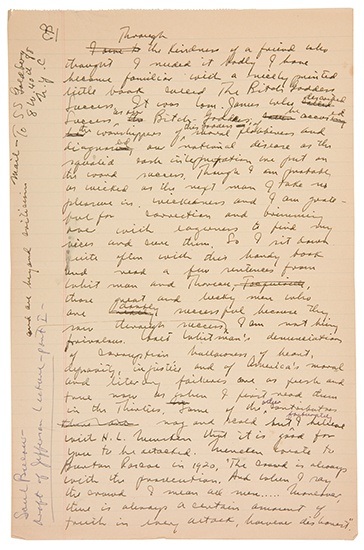 Through
I owe to the kindness of a friend who
thought I needed it badly I have
become familiar with a neatly printed
little book called The Bitch-Goddess
Success. It was Wm. James who described
success as our Bitch-Goddess,
worshippers of this goddess of
and diagnosed our national disease as the
squalid cash interpretation we put on
the word success. Though I am probably
as wicked as the next man I take no
pleasure in wickedness and I am grate-
ful for correction and
with eagerness to find my
vices and cure them. So I sit down
quite often with this handy book
and read a few sentences from
Whitman and Thoreau,
those great and lucky men who
are successful because they
saw through success. I am not being
frivolous. Whitman's denunciation
of corruption hollowness of heart,
hypocrisy, injustice and of America's moral
and literary failures are as fresh and
true now as when I first read them
in the Thirties. Some of the other contributors
nag and scold but I believe
with H. L. Mencken that it is good for
you to be attacked. Mencken wrote to
Burton Rascoe in 1920, "The crowd is always
with the prosecution. And when I say
the crowd I mean all men.... Moreover,
there is always a certain amount of
truth in every attack, however dishonest"
Mail - To SS Goldberg
N.Y.C
and are beyond criticism
Saul Bellow -
draft of Jefferson Lecture - part I -